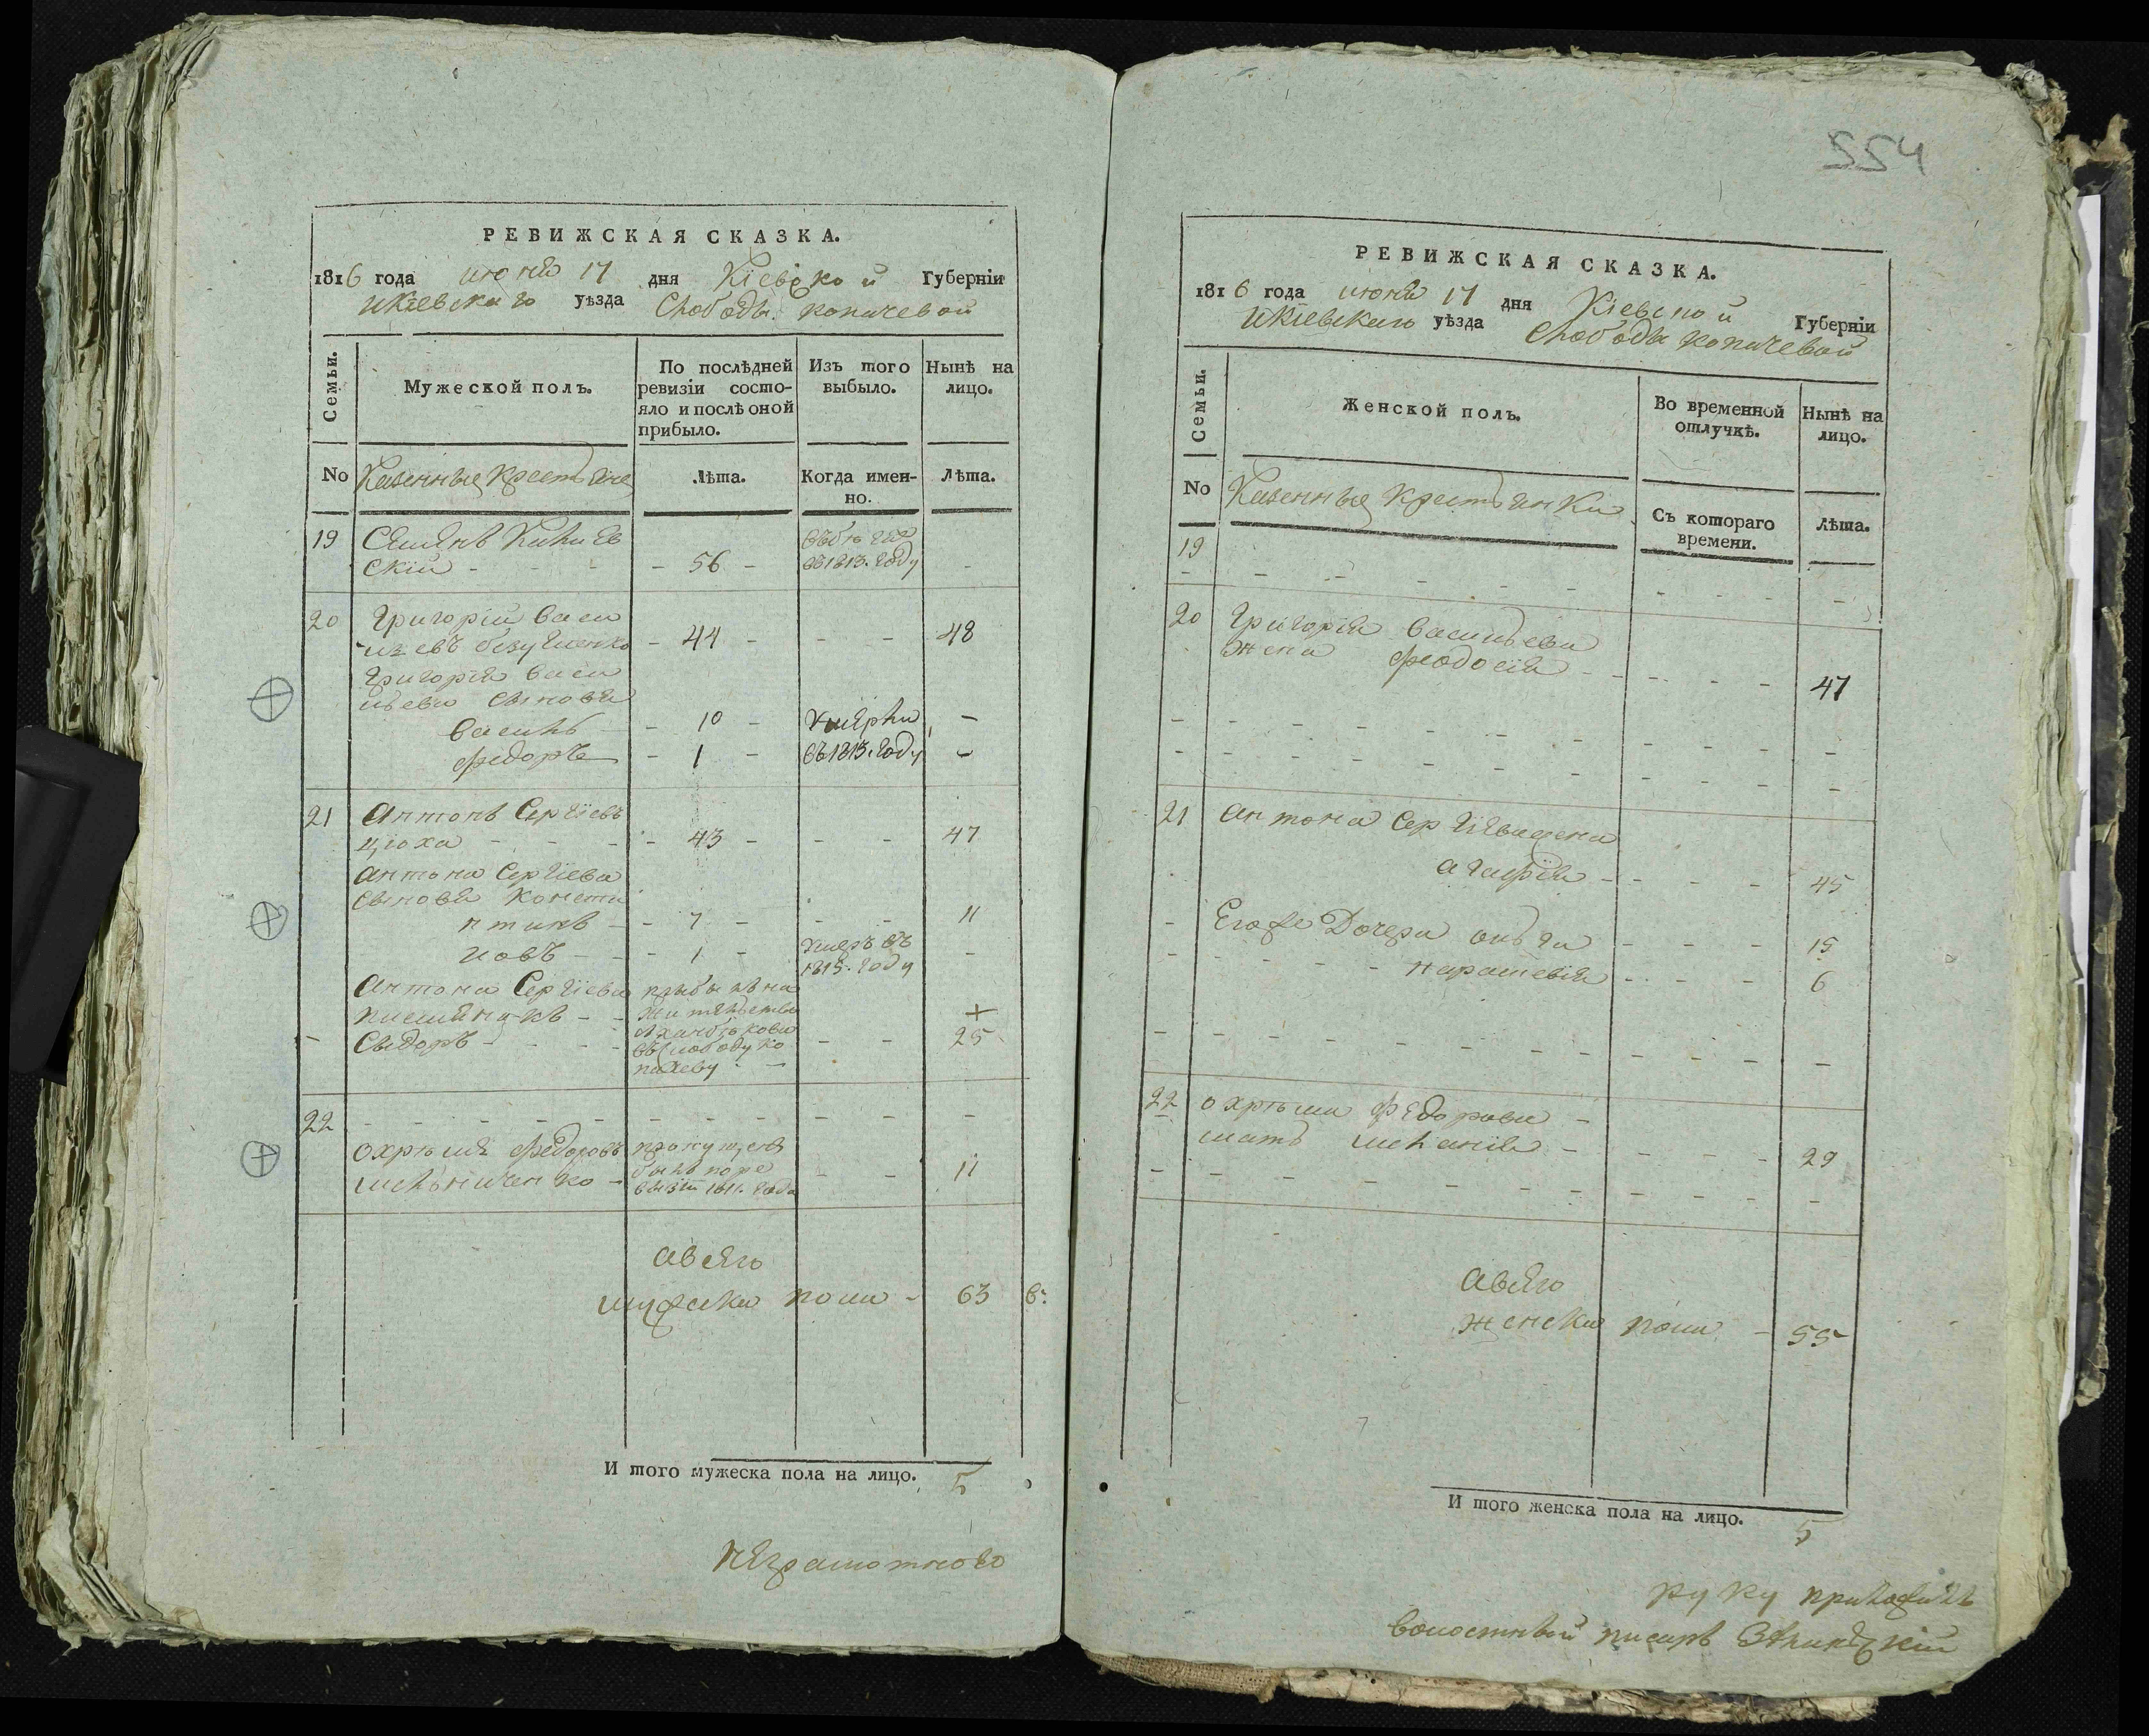 554
РЕВИЖСКАЯ СКАЗКА.
1816 года июня 17 дня Кіевской Губерніи
икіевскаго уѣзда Слободы копачевой
Семьи.
Мужеской полъ.
По послѣдней ревизіи состо-
яло и послѣ оной
прибыло.
Изъ того
выбыло.
Нынѣ на
лицо.
No Казенные крестьяне
Лѣта.
Когда имен-
но.
Лѣта.
19 Семенъ
скій - 56 -
въ 1813. году
20 Григорій Васи
льевъ безущенко - 44 - - - 48
Григорія Васи
льева сыновья
Василь - 10 - умерли -
Федоръ - 1 - въ 1813. году -
21 Антонъ Сергіевъ
цюха - 43 - - - 47
Антона Сергіева
сыновья Конста
нтинъ - 7 - - - 11
иовъ - 1 - умеръ въ
1815. году -
Антона Сергіева прибылъ на
племяникъ жителство
Сыдоръ - - - 25
въ слободу ко
пачеву
22
Охрѣмъ Федоровъ пропущенъ
мельниченко - былъ по ре
визіи 1811. года - - 11
А всего
мужеска пола - 63
И того мужеска пола на лицо. 5
Неграмотново
РЕВИЖСКАЯ СКАЗКА.
1816 года июня 17 дня Кіевской Губерніи
икіевскаго уѣзда Слободы копачевой
Семьи.
Женской полъ.
Во временной
отлучкѣ.
Нынѣ на
лицо.
No Казенные крестьянки
Съ котораго
времени.
Лѣта.
19
20 Григорія Васильева
жена Феодосія - 47
21 Антона Сергіева жена
агафія - 45
Его же Дочери олѣга - 15
парасковія - 6
22 Охрѣма Федорова -
мать меланія - 29
А всего
женска пола - 55
И того женска пола на лицо. 5
руку приложилъ
волостный писаръ